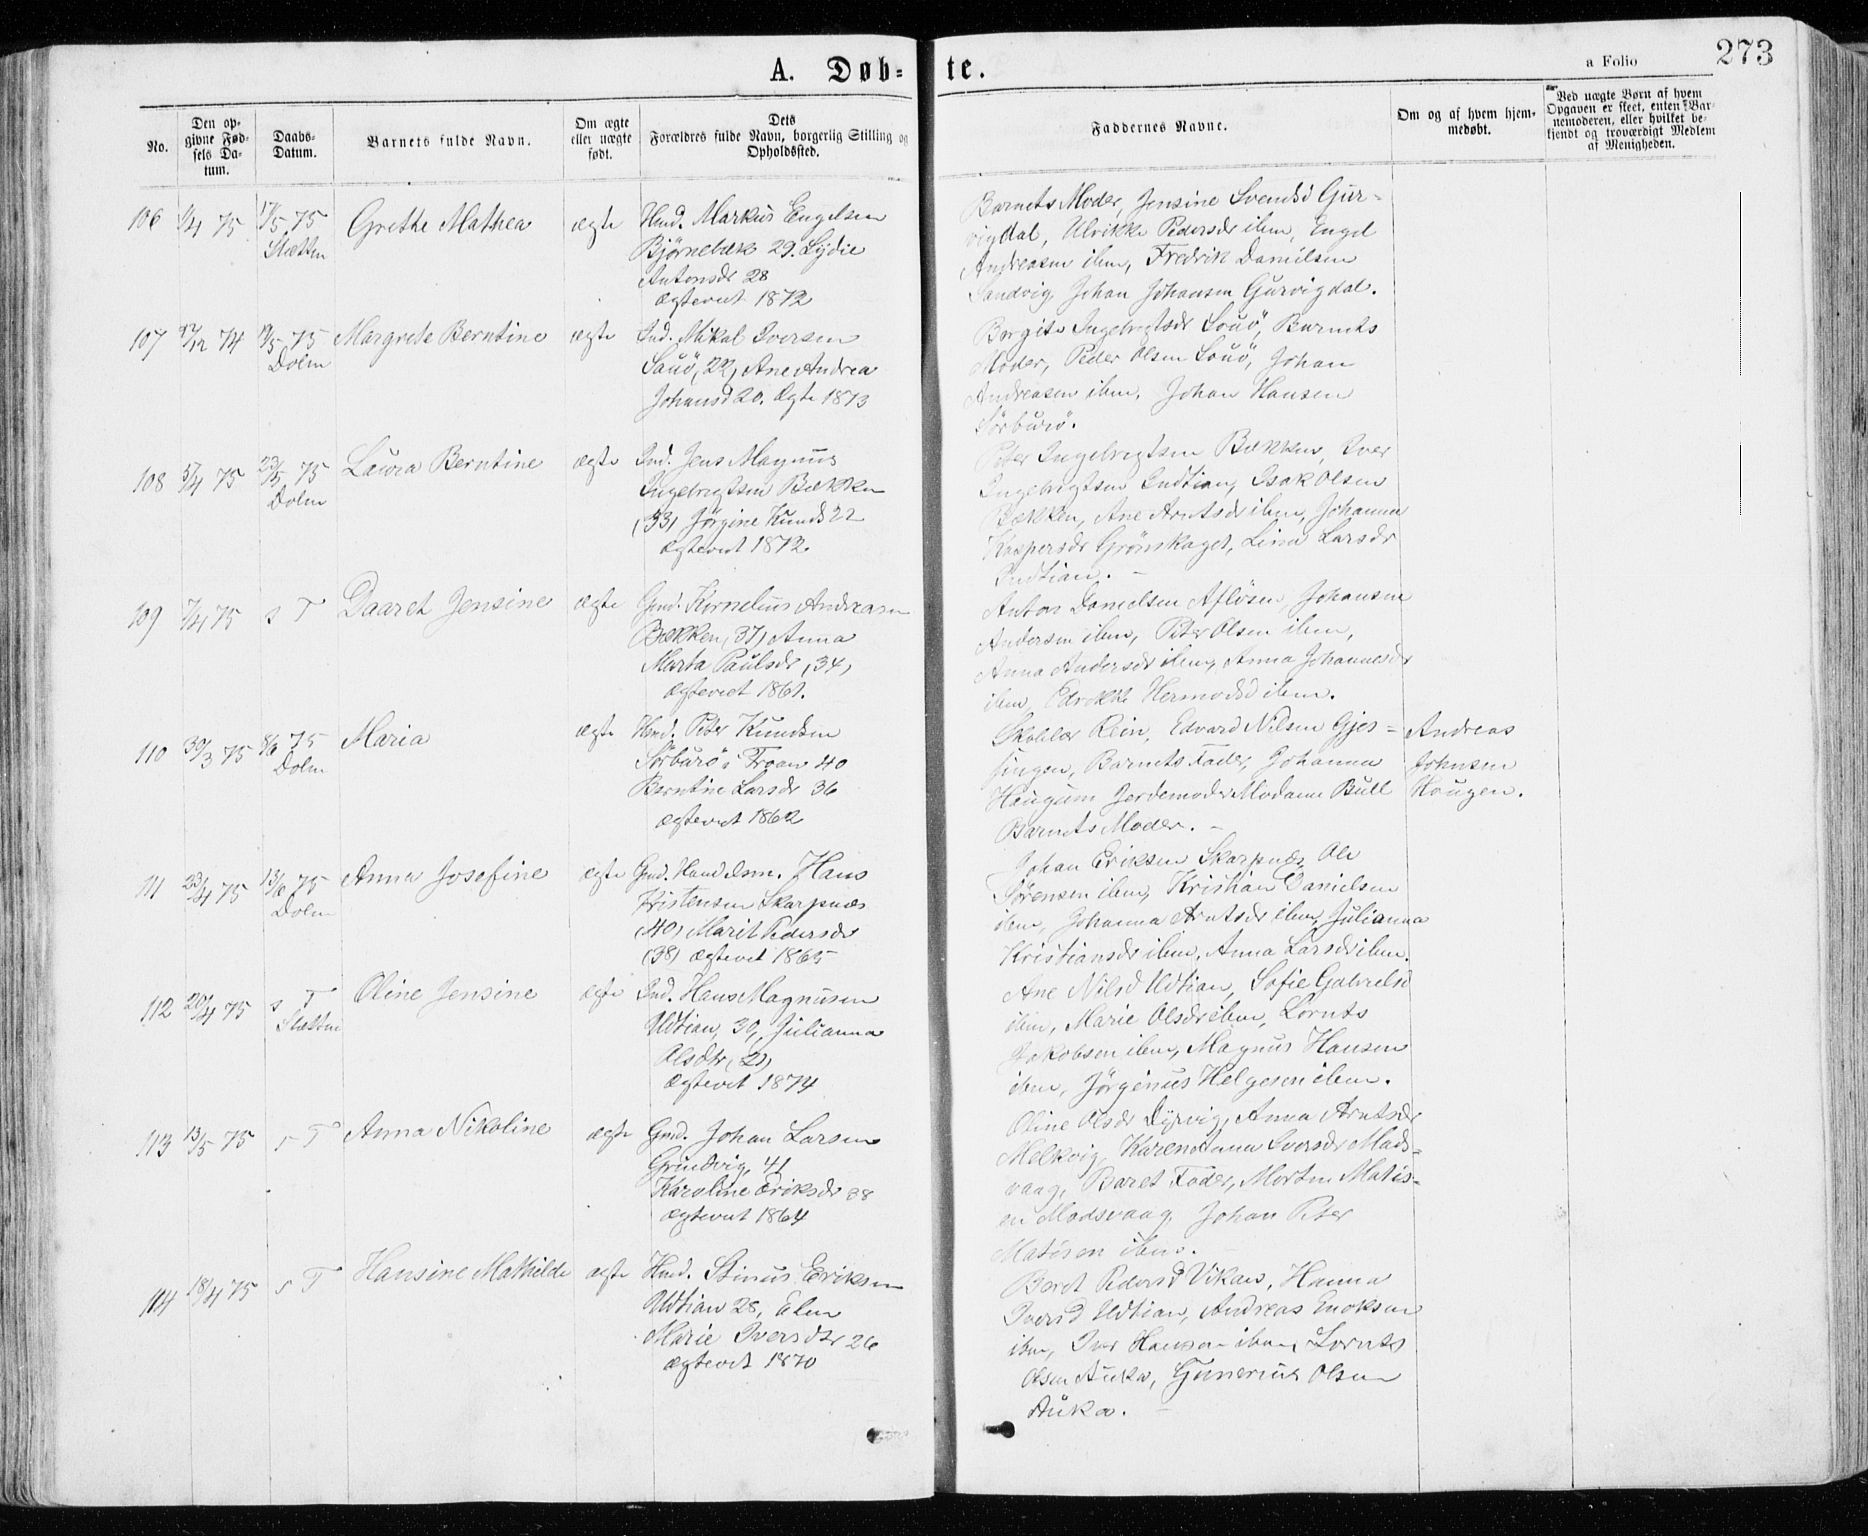 A. Døb-te.
a Folio 273
No.
Den op-
givne Fød-
sels Da-
tum.
Daabs-
Datum.
Barnets fulde Navn.
Om ægte
eller uægte
født.
Dets
Forældres fulde Navn, borgerlig Stilling og
Opholdssted.
Faddernes Navne.
Om og af hvem hjem-
medøbt.
Ved uægte Børn af hvem
Opgaven er skeet, enten Bar-
nemoderen, eller hvilket be-
kjendt og troværdigt Medlem
af Menigheden.
106 75 17/5 75 Grethe Mathea ægte Hmd. Markus Engelsen
Slætten Bjørnebæk 29. Lydie
Antonsdr 28
ægteviet 1872
Barnets Moder, Jensine Svendsd Gur-
vigdal, Ulrikke Pedersdr ibm, Engel
Andreasen ibm, Fredrik Danielsen
Sandvig, Johan Johansen Gurvigdal.
107 74 75 Margrete Berntine ægte Ind. Mikal Iversen
Dolm Sauø, 22, Ane Andrea
Johansd 20. Ægte 1873
Ingebrigtsdr Souø, Barnets
Moder, Peder Olsen Souø, Johan
Andreasen ibm, Johan Hansen
Sørburø.
108 5/4 75 23/5 75 Laura Berntine ægte Ind. Jens Magnus
Dolm Ingebrigtsen Bækken
(33) Jørgine Knuds 22
ægteviet 1872
Peter Ingebrigtsen Bækken, Iver
Ingebrigtsen Indtian, Isak Olsen
Bækken, Ane Arntsdr ibm, Johanna
Kaspersdr Grønskaget, Lina Larsdr
Indtian.
109 7/4 75 s T Daaret Jensine ægte Gmd. Kornelius Andreasen
Bækken (37) Anna
Marta Paulsdr (34)
ægteviet 1861.
Anton Danielsen Afløsen, Johansen
Andersen ibm, Peter Olsen ibm,
Anna Andersdr ibm, Anna Johannesdr
ibm, Hermodsd ibm.
110 30/3 75 75 Maria ægte Hmd. Peter Knudsen
Dolm Sørburø i Froan 40
Berntine Larsdr 36
ægteviet 1862
Rein, Edvard Nilsen Gjes-
singen, Barnets Fader, Johanna
Haugum Jordemoder Madame Bull
Barnets Moder.
Andreas
Johnsen
Haugen.
111 23/4 75 13/6 75 Anna Josefine ægte Gmd. Hans
Dolm Kristensen Skarpnæs
(40) Marit Pedersdr
(38) ægteviet 1865
Johan Eriksen Skarpnæs, Ole
Sørensen ibm, Kristian Danielsen
ibm, Johanna Arntsdr ibm, Julianna
Kristiansdr ibm, Anna Larsdr ibm.
112 20/4 75 s T Oline Jensine ægte Ind. Hans Magnusen
Slætten Udtian, 30, Julianna
Olsdtr, (21)
ægteviet 1874
Ane Nilsd Udtian, Sofie Gabrielsd
ibm, Marie Olsdr ibm, Lornts
Jakobsen ibm, Magnus Hansen
ibm, Jørginus Helgesen ibm.
113 13/5 75 s T Anna Nikoline ægte Gmd. Johan Larsen
Grindvig, 41
Karoline Eriksdr 38
ægteviet 1864
Oline Olsdr Dyrvig, Anna Arntsdr
Melkvig, Karen Anna Iversdr Mads-
vaag, Baret Fader, Morten Matis-
en Madsvaag, Johan Peter
Matisen ibm.
114 18/4 75 s T Hansine Mathilde ægte Hmd. Stinus Eriksen
Udtian 28, Elen
Marie Iversdtr 26
ægteviet 1870
Beret Pedersd Vikan, Hanna
Iversd Udtian, Andreas Enoksen
ibm, Iver Hansen ibm, Lornts
Olsen Auka, Gunerius Olsen
Auka.